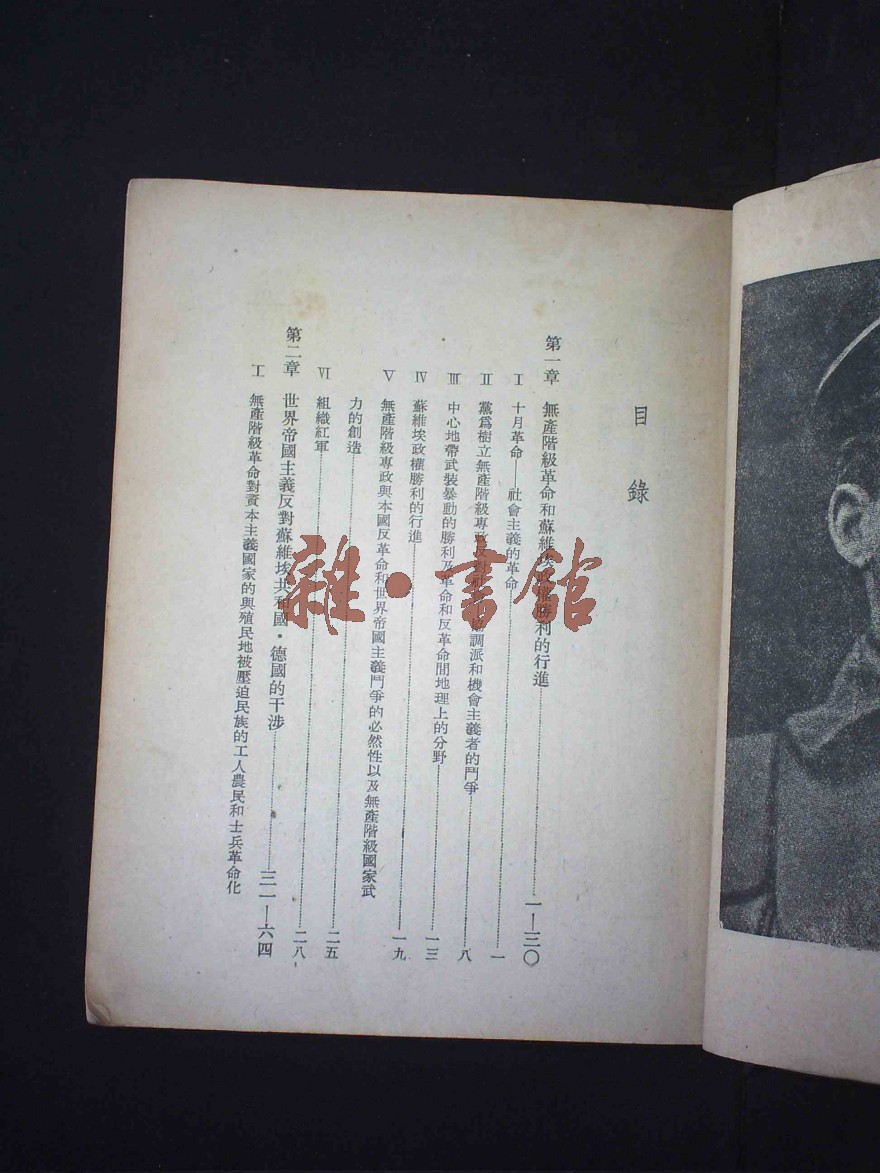 目錄
第一章 無產階級革命和蘇維埃政權勝利的行進……一—三〇
I 十月革命——社會主義的革命……一
II 黨爲樹立無產階級專政反對 協調派和機會主義者的鬥爭……八
III 中心地帶武裝暴動的勝利及革命和反革命間地理上的分野……一三
IV 蘇維埃政權勝利的行進……一九
V 無產階級專政與本國反革命和世界帝國主義鬥爭的必然性以及無產階級國家武
力的創造……二五
VI 組織紅軍……二八
第二章 世界帝國主義反對蘇維埃共和國・德國的干涉……三一—六四
I 無產階級革命對資本主義國家的與殖民地被壓迫民族的工人農民和士兵革命化
雜・書館